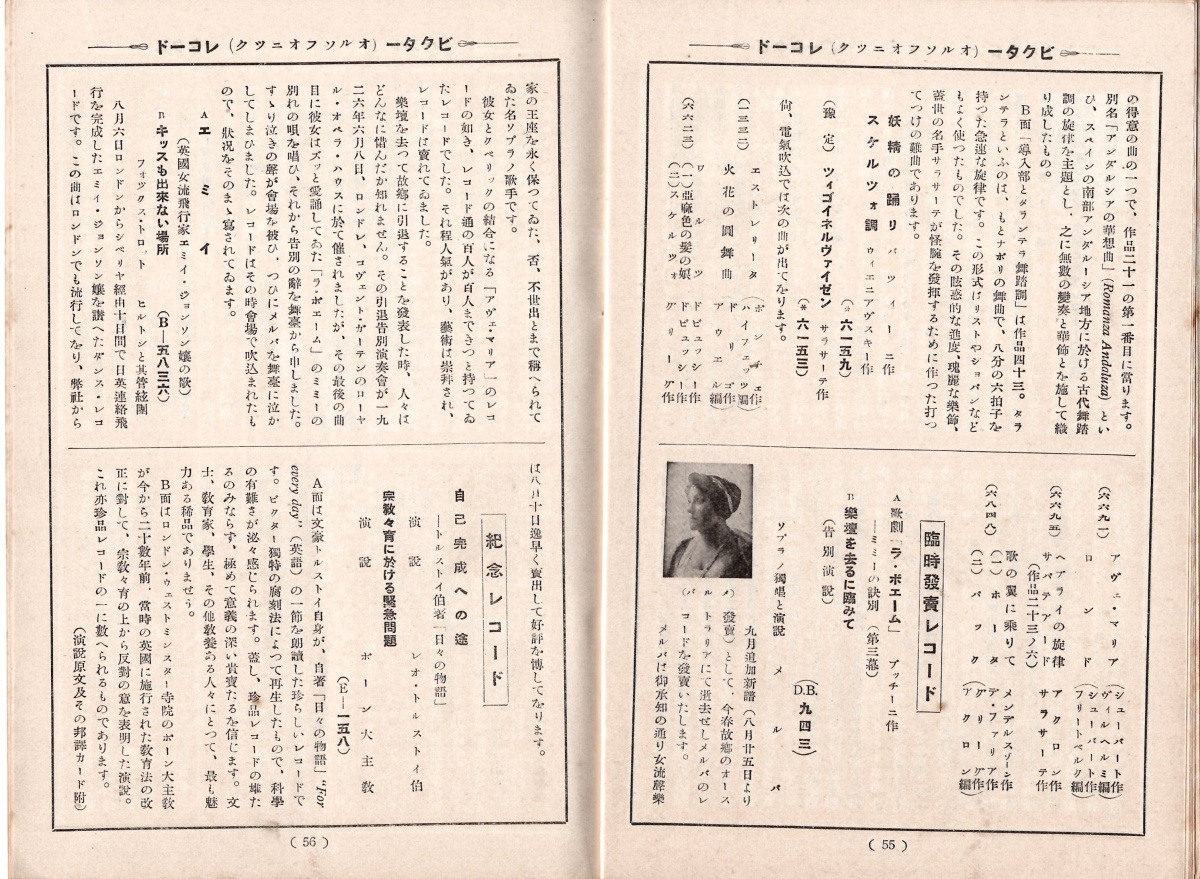 ビクター(オルソフオニツク)レコード
の得意の曲の一つで、作品二十一の第一番目に當ります。
別名「アンダルシアの華想曲」(Romanza Andaluza)とい
ひ、スペインの南部アンダルーシア地方に於ける古代舞踏
調の旋律を主題とし、之に無數の變奏と華飾とを施して織
り成したもの。
B面「導入部とタランテラ舞踏調」は作品四十三。タラ
ンテラといふのは、もとナポリの舞曲で、八分の六拍子を
持つた急速な旋律です。この形式はリストやショパンなど
もよく使つたものでした。その眩惑的な進度、瑰麗な樂飾、
蓋世の名手サラサーテが怪腕を發揮するために作つた打つ
てつけの難曲であります。
妖精の踊り バツィーニ作
スケルツォ調 ウィエニアヴスキー作
(※六一五九)
(豫定) ツィゴイネルヴァイゼン サラサーテ作
(※六一五三)
尙、電氣吹込では次の曲が出てをります。
エストレリータ (ポンチェ作 ハイフェッツ編)
(一三三二)
火花の圓舞曲 (ドリゴ作 アウエル編)
ワルツ ドビュッシー作
(六六二三) (一)亞麻色の髮の娘 ドビュッシー作
(二)スケルツォ グリーグ作
アヴェ・マリア (シューバート作 ヴィルヘルミ編)
(六六九一)
ロンド (シューバート作 フリートベルク編)
ヘブライの旋律 アクロン作
(六六九五)
サパテアード サラサーテ作
(作品二十三ノ六)
歌の翼に乘りて メンデルスゾーン作
(六八四八) (一)ホータ デ・ファリア作
(二)パック (グリーグ作 アクロン編)
臨時發賣レコード
A 歌劇「ラ・ボエーム」 プッチーニ作
―ミミーの訣別(第三幕)
B 樂壇を去るに臨みて
(告別演說)
(D.B.九四三)
ソプラノ獨唱と演說 メルバ
九月追加新譜(八月廿五日より
發賣)として、今春故鄕のオース
トラリアにて逝去せしメルバのレ
コードを發賣いたします。
メルバは御承知の通り女流聲樂
(メルバ)
(55)
ビクター(オルソフオニツク)レコード
家の王座を永く保つてゐた、否、不世出とまで稱へられて
ゐた名ソプラノ歌手です。
彼女とクベリックの結合になる「アヴェ・マリア」のレコ
ードの如き、レコード通の百人が百人まできつと持つてゐ
たレコードでした。それ程人氣があり、藝術は崇拜され、
レコードは賣れてゐました。
樂壇を去つて故鄕に引退することを發表した時、人々は
どんなに惜んだか知れません。その引退吿別演奏會が一九
二六年六月八日、ロンドン、コヴェント・ガーデンのローヤ
ル・オペラ・ハウスに於て催されましたが、その最後の曲
目に彼女はズッと愛誦してゐた「ラ・ボエーム」のミミーの
別れの唄を唱ひ、それから告別の辭を舞臺から申しました。
すゝり泣きの聲が會場を被ひ、つひにメルバを舞臺に泣か
してしまひました。レコードはその時會場で吹込まれたも
ので、狀況をそのまゝ寫されてゐます。
A エミイ
(英國女流飛行家エミイ・ジョンソン孃の歌)
B キッスも出來ない場所 (B―五八三六)
フォックス・トロット ヒルトンと其管絃團
八月六日ロンドンからシベリヤ經由十日間で日英連絡飛
行を完成したエミイ・ジョンソン孃を讚へたダンス・レコ
ードです。この曲はロンドンでも流行してをり、弊社から
は八月十日逸早く賣出して好評を博してをります。
紀念レコード
自己完成への途
―トルストイ伯著「日々の物語」
演說 レオ・トルストイ伯
宗敎々育に於ける緊急問題
演說 ボーン大主敎
(E―一五八)
A面は文豪トルストイ自身が、自著「日々の物語」“For
every day”(英語)の一節を朗讀した珍らしいレコードで
す。ビクター獨特の腐刻法によつて再生したもので、科學
の有難さが泌々感じられます。蓋し、珍品レコードの雄た
るのみならず、極めて意義の深い貴寶たるを信じます。文
士、敎育家、學生、その他敎養ある人々にとつて、最も魅
力ある稀品でありませう。
B面はロンドン・ウェストミンスター寺院のボーン大主敎
が今から二十數年前、當時の英國に施行された敎育法の改
正に對して、宗敎々育の上から反對の意を表明した演說。
これ亦珍品レコードの一に數へられるものであります。
(演說原文及その邦譯カード附)
(56)